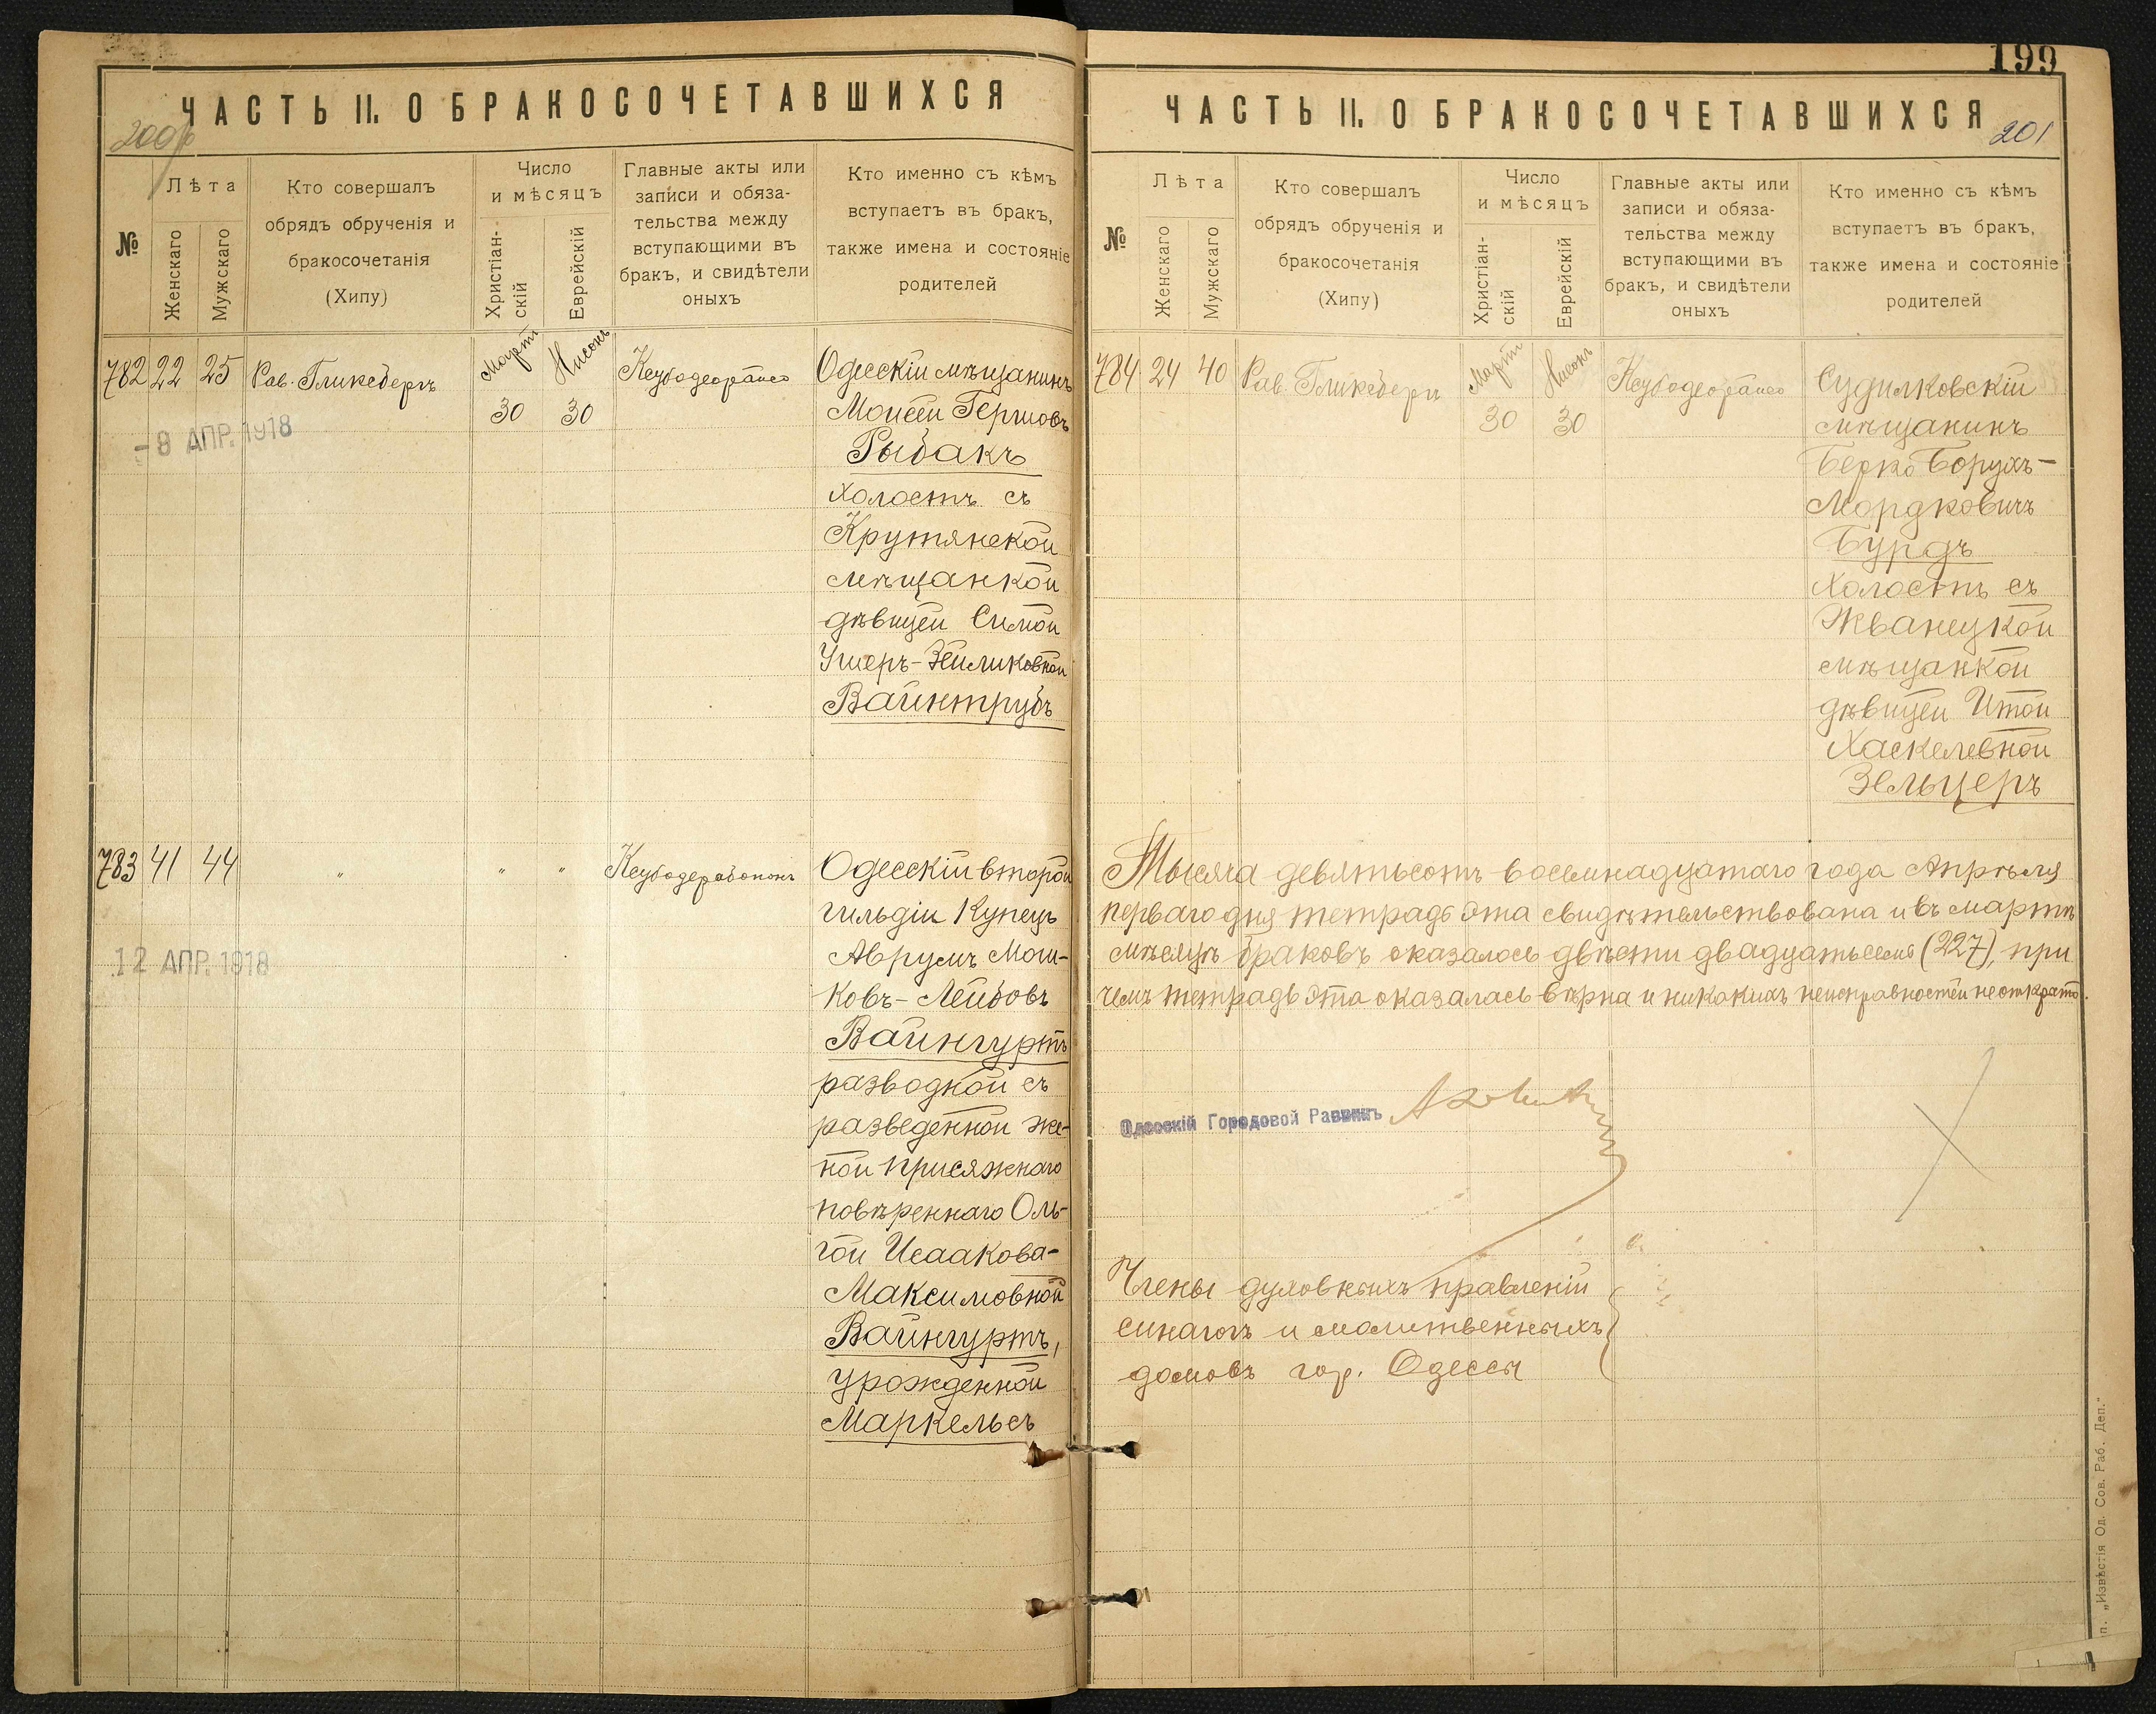 ЧАСТЬ II. О БРАКОСОЧЕТАВШИХСЯ
№
Лѣта
Женскаго
Мужскаго
Кто совершалъ
обрядъ обрученія и
бракосочетанія
(Хипу)
Число
и мѣсяцъ
Христіан-
скій
Еврейскій
Главные акты или
записи и обяза-
тельства между
вступающими въ
бракъ, и свидѣтели
оныхъ
Кто именно съ кѣмъ
вступаетъ въ бракъ,
также имена и состояніе
родителей
782 22 25 Рав. Гликсбергъ
Март 30
Нисонъ 30
Одесскій мѣщанинъ
Моисей Гершовъ
Рыбакъ
холостъ съ
Крутянской
мѣщанкой
дѣвицей Симой
Ушеръ-Зейликовной
Вайнтрубъ
- 8 АПР. 1918
783 41 44 " " "
Одесскій второй
гильдіи Купецъ
Аврумъ Мош-
ковъ-Лейбовъ
Вайнгуртъ
разводной съ
разведенной же-
ной присяжнаго
повѣреннаго Оль-
гой Исаакова-
Максимовной
Вайнгуртъ,
урожденной
Маркельсъ
12 АПР. 1918
199
ЧАСТЬ II. О БРАКОСОЧЕТАВШИХСЯ
201
№
Лѣта
Женскаго
Мужскаго
Кто совершалъ
обрядъ обрученія и
бракосочетанія
(Хипу)
Число
и мѣсяцъ
Христіан-
скій
Еврейскій
Главные акты или
записи и обяза-
тельства между
вступающими въ
бракъ, и свидѣтели
оныхъ
Кто именно съ кѣмъ
вступаетъ въ бракъ,
также имена и состояніе
родителей
784 24 40 Рав. Гликсбергъ
Март 30
Нисонъ 30
Судилковскій
мѣщанинъ
Берко Борухъ-
Мордковичъ
Бурдъ
холостъ съ
Жванецкой
мѣщанкой
дѣвицей Итой
Хаскелевной
Зельцеръ
Тысяча девятьсотъ восемнадцатаго года Апрѣля
перваго дня тетрадь эта свидѣтельствована и въ мартѣ
мѣсяцѣ браковъ оказалось двѣсти двадцать семь (227), при
чемъ тетрадь эта оказалась вѣрна и никакихъ неисправностей не открыто.
Одесскій Городовой Раввинъ
Члены духовныхъ правленій
синагогъ и молитвенныхъ
домовъ гор. Одессы
п. „Извѣстія Од. Сов. Раб. Деп."